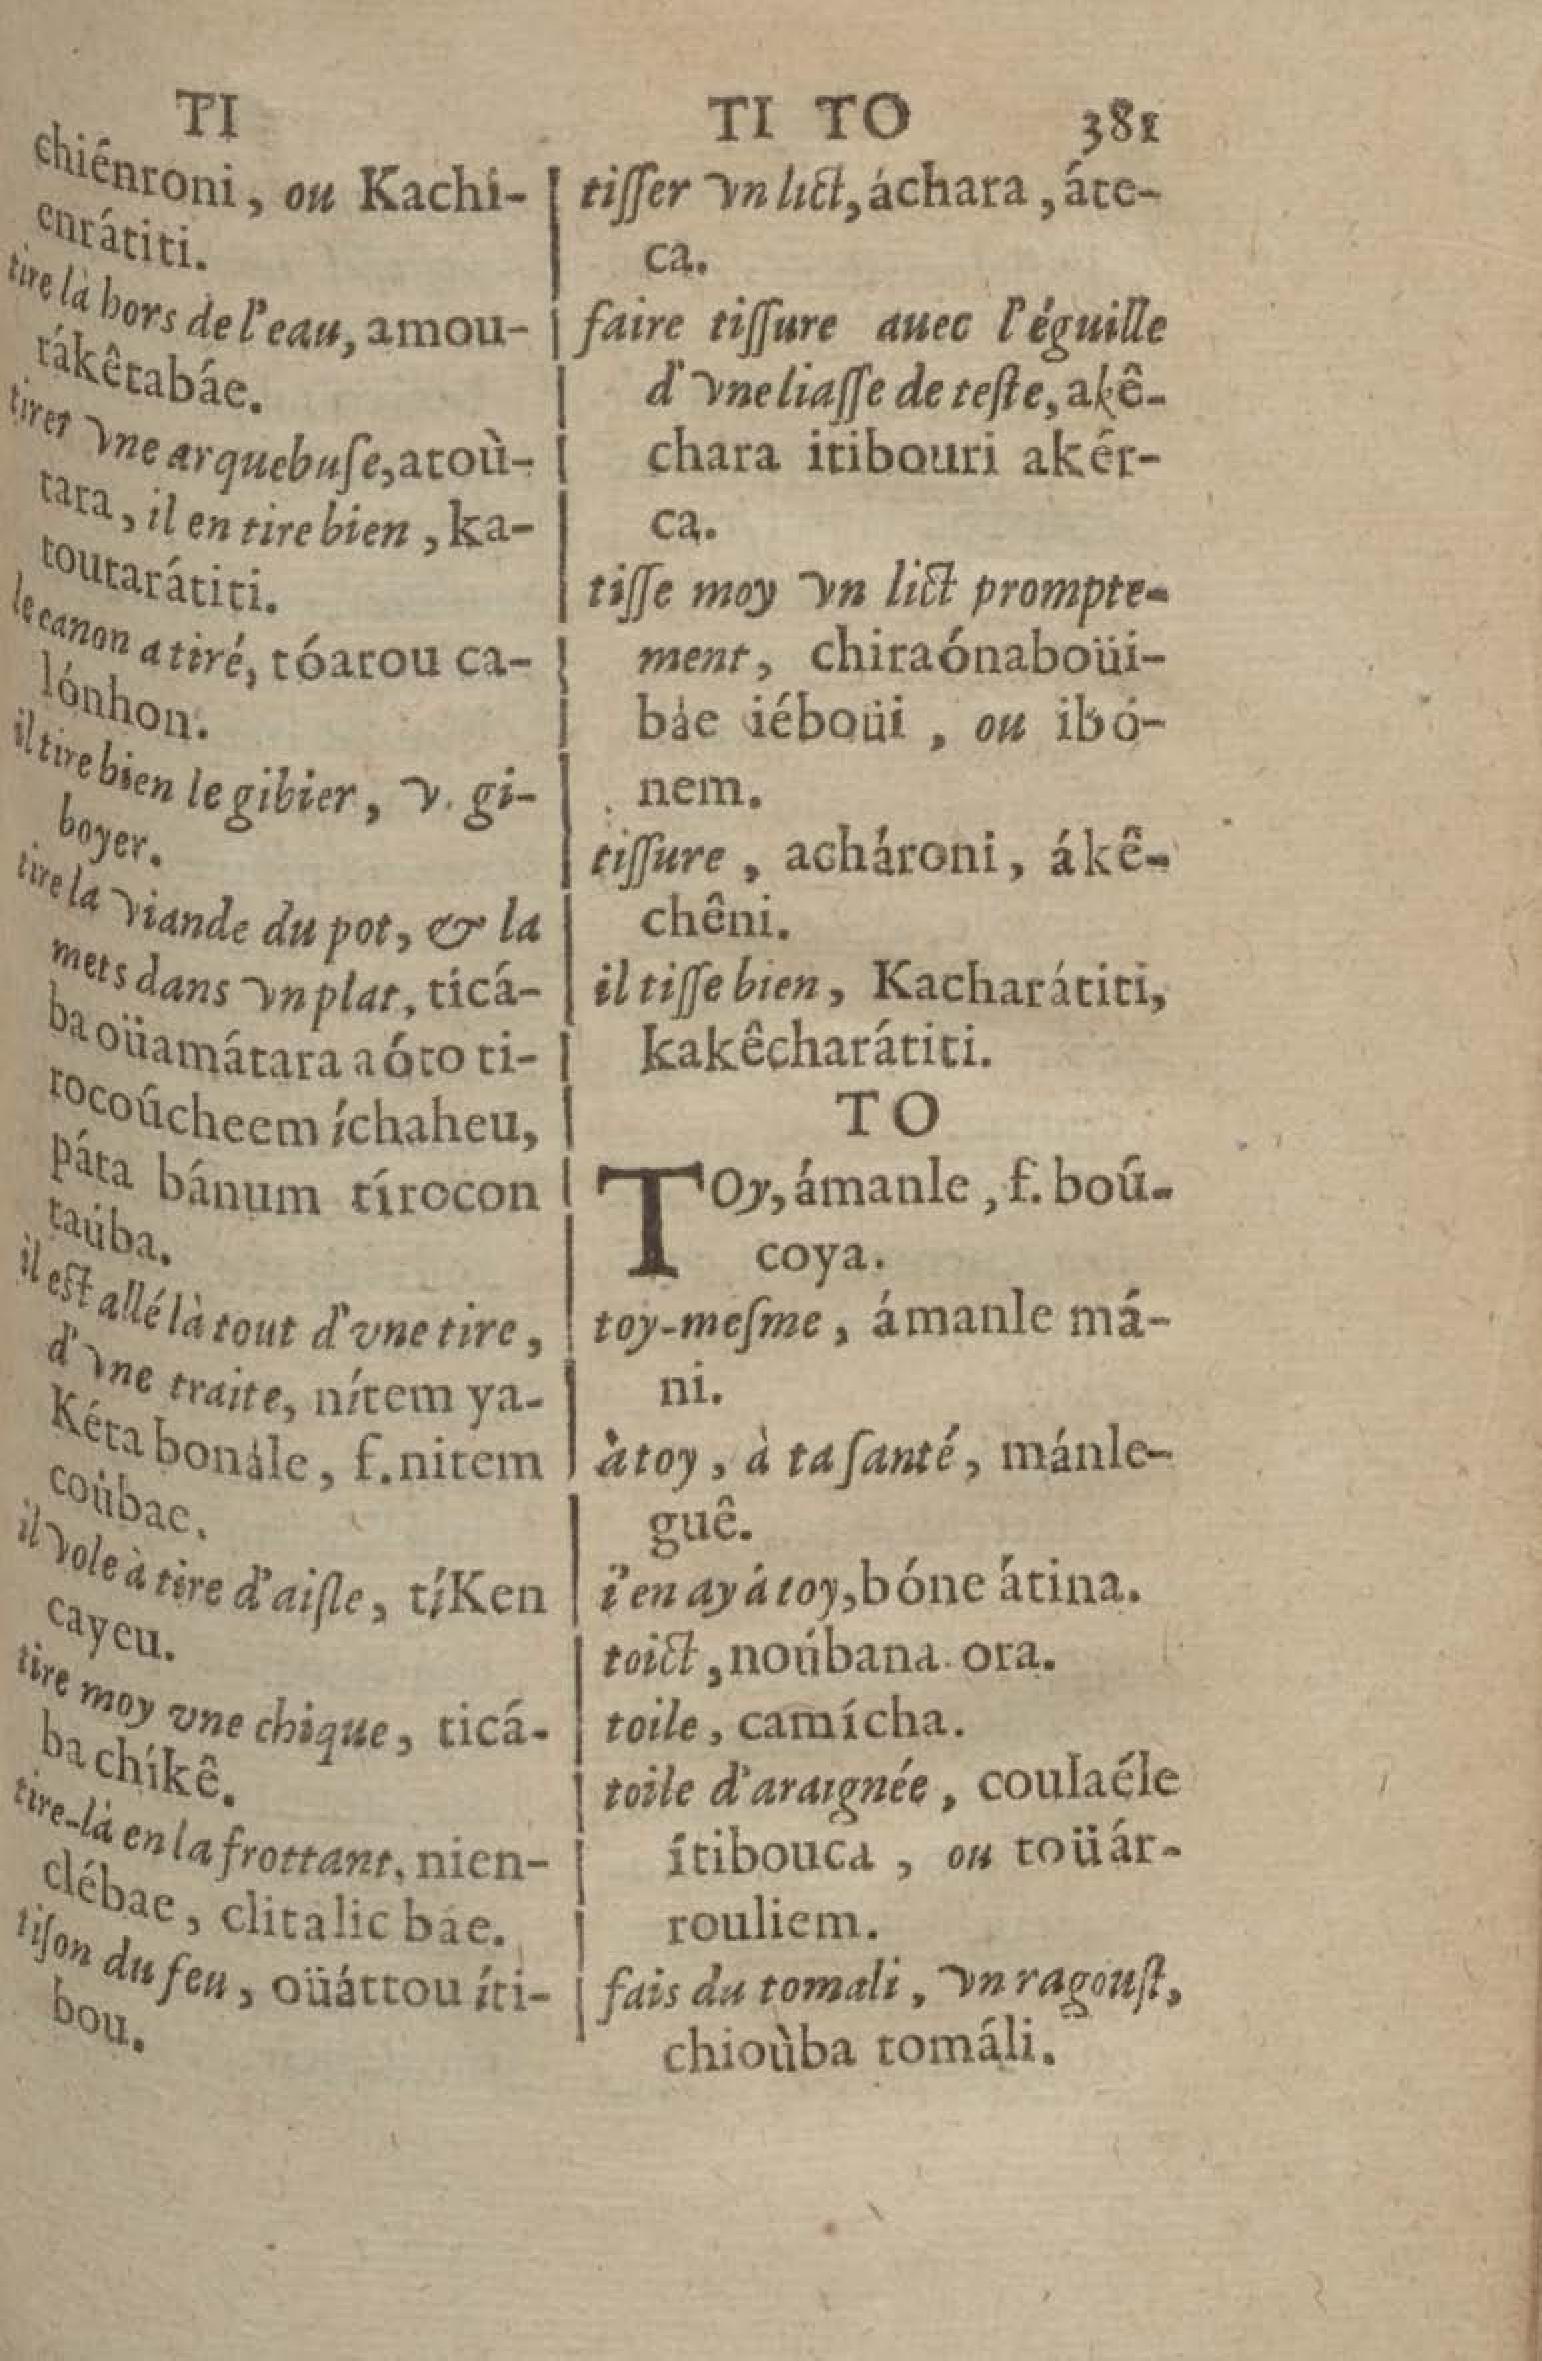 TI
chiénroni, ou Kachi-
enrátiti.
tire là hors de l'eau, amou-
rákêtabáe.
tirer vne arquebuſe, atoù-
tara, il en tire bien, ka-
toutarátiti.
le canon a tiré, tóarou ca-
lónhon.
il tire bien le gibier, v. gi-
boyer.
tire la viande du pot, & la
mets dans vn plat, ticá-
ba oüamátara aóto ti-
rocoúcheem íchaheu,
páta bánum tírocon
taúba.
il est allé là tout d'vne tire,
d'vne traite, nítem ya-
Kéta bonále, f. nitem
coúbae.
il vole à tire d'aiſle, tíKen
cayeu.
tire moy vne chique, ticá-
ba chíkê.
tire-là en la frottant, nien-
clébae, clitalic báe.
tiſon du feu, oüáttou íti-
bou.
TI TO 381
tiſſer vn lict, áchara, áte-
ca.
faire tiſſure auec l'éguille
d'vne liaſſe de teſte, akê-
chara itibouri akér-
ca.
tiſſe moy vn lict prompte-
ment, chiraónaboüi-
báe iéboüi, ou ibó-
nem.
tiſſure, achároni, ákê-
chêni.
il tiſſe bien, Kacharátiti,
kakêcharátiti.
TO
TOy, ámanle, f. boú-
coya.
toy-meſme, ámanle má-
ni.
à toy, à ta ſanté, mánle-
guê.
i'en ay à toy, bóne átina.
toict, noúbana ora.
toile, camícha.
toile d'araignée, coulaéle
ítibouca, ou toüár-
rouliem.
fais du tomali, vn ragouſt,
chioùba tomáli.